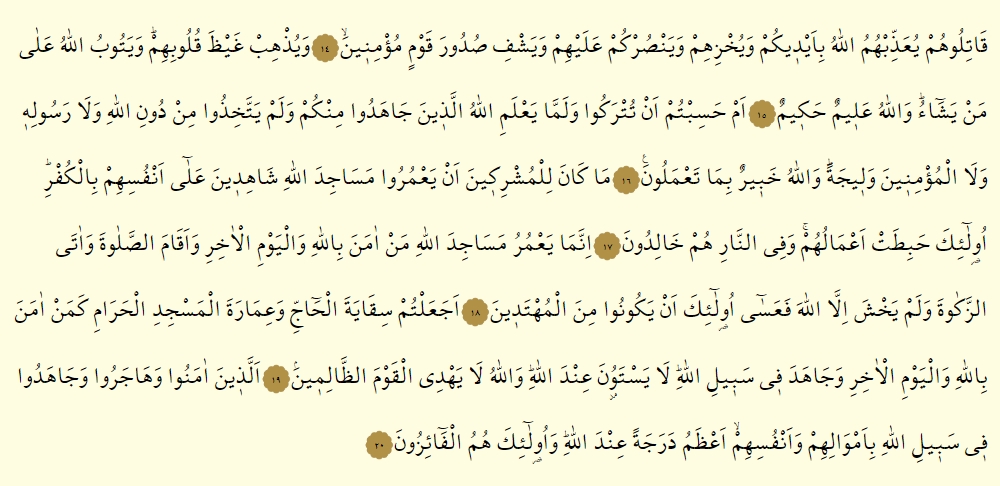 قَاتِلُوهُمْ يُعَذِّبْهُمُ اللّٰهُ بِاَيْد۪يكُمْ وَيُخْزِهِمْ وَيَنْصُرْكُمْ عَلَيْهِمْ وَيَشْفِ صُدُورَ قَوْمٍ مُؤْمِن۪ينَۙ ﴿١٤﴾ وَيُذْهِبْ غَيْظَ قُلُوبِهِمْۜ وَيَتُوبُ اللّٰهُ عَلٰى
مَنْ يَشَٓاءُۜ وَاللّٰهُ عَل۪يمٌ حَك۪يمٌ ﴿١٥﴾ اَمْ حَسِبْتُمْ اَنْ تُتْرَكُوا وَلَمَّا يَعْلَمِ اللّٰهُ الَّذ۪ينَ جَاهَدُوا مِنْكُمْ وَلَمْ يَتَّخِذُوا مِنْ دُونِ اللّٰهِ وَلَا رَسُولِه۪
وَلَا الْمُؤْمِن۪ينَ وَل۪يجَةًۜ وَاللّٰهُ خَب۪يرٌ بِمَا تَعْمَلُونَ۟ ﴿١٦﴾ مَا كَانَ لِلْمُشْرِك۪ينَ اَنْ يَعْمُرُوا مَسَاجِدَ اللّٰهِ شَاهِد۪ينَ عَلٰٓى اَنْفُسِهِمْ بِالْكُفْرِۜ
اُو۬لٰٓئِكَ حَبِطَتْ اَعْمَالُهُمْۚ وَفِى النَّارِ هُمْ خَالِدُونَ ﴿١٧﴾ اِنَّمَا يَعْمُرُ مَسَاجِدَ اللّٰهِ مَنْ اٰمَنَ بِاللّٰهِ وَالْيَوْمِ الْاٰخِرِ وَاَقَامَ الصَّلٰوةَ وَاٰتَى
الزَّكٰوةَ وَلَمْ يَخْشَ اِلَّا اللّٰهَ فَعَسٰٓى اُو۬لٰٓئِكَ اَنْ يَكُونُوا مِنَ الْمُهْتَد۪ينَ ﴿١٨﴾ اَجَعَلْتُمْ سِقَايَةَ الْحَٓاجِّ وَعِمَارَةَ الْمَسْجِدِ الْحَرَامِ كَمَنْ اٰمَنَ
بِاللّٰهِ وَالْيَوْمِ الْاٰخِرِ وَجَاهَدَ ف۪ى سَب۪يلِ اللّٰهِۜ لَا يَسْتَوُ۫نَ عِنْدَ اللّٰهِۜ وَاللّٰهُ لَا يَهْدِى الْقَوْمَ الظَّالِم۪ينَۢ ﴿١٩﴾ اَلَّذ۪ينَ اٰمَنُوا وَهَاجَرُوا وَجَاهَدُوا
ف۪ى سَب۪يلِ اللّٰهِ بِاَمْوَالِهِمْ وَاَنْفُسِهِمْۙ اَعْظَمُ دَرَجَةً عِنْدَ اللّٰهِۜ وَاُو۬لٰٓئِكَ هُمُ الْفَٓائِزُونَ ﴿٢٠﴾